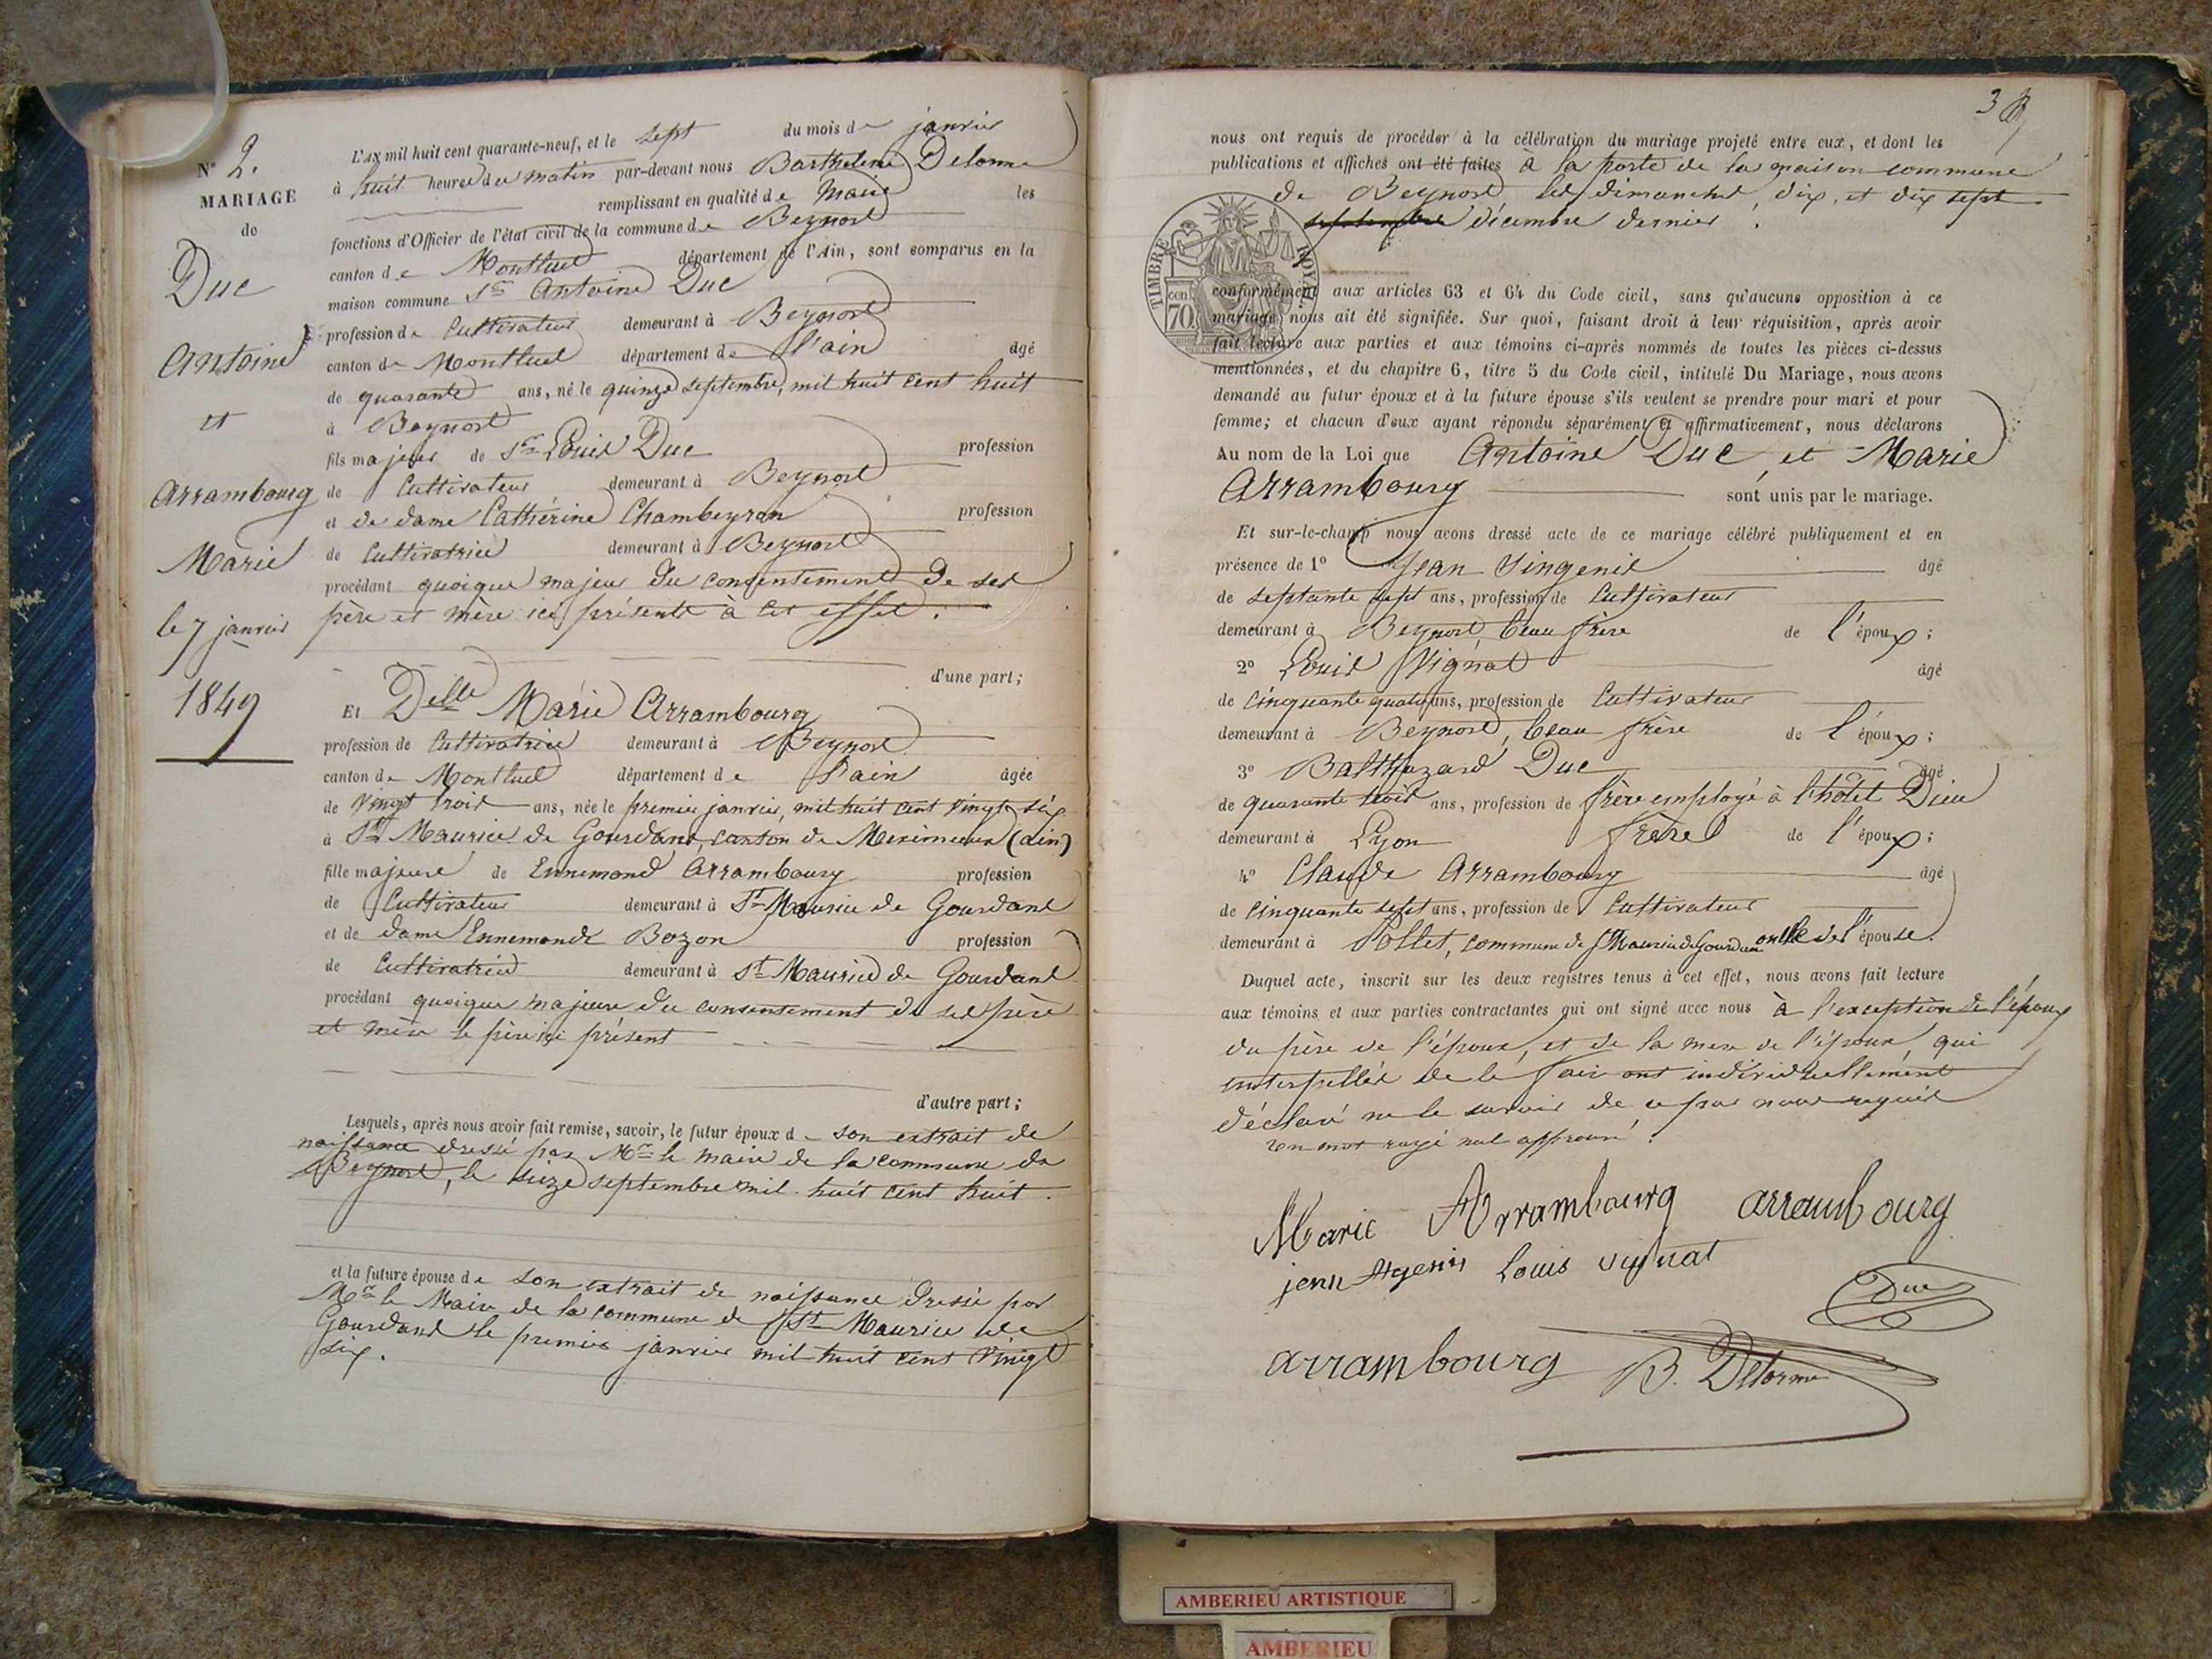 N° 2.
MARIAGE
de
Duc
Antoine
et
Arrambourg
Marie
le 7 janvier
1849
L'AN mil huit cent quarante-neuf, et le sept du mois de janvier
à huit heures du matin par-devant nous Barthelemi Delorme
remplissant en qualité de Maire les
fonctions d'Officier de l'état civil de la commune de Beynost
canton de Montluel département de l'Ain, sont comparus en la
maison commune Sr Antoine Duc
profession de Cultivateur demeurant à Beynost
canton de Montluel département de l'ain âgé
de quarante ans, né le quinze septembre, mil huit cent huit
à Beynost
fils majeur de Sr Louis Duc profession
de Cultivateur demeurant à Beynost
et de dame Cathérine Chambeyron profession
de Cultivatrice demeurant à Beynost
procédant quoique majeur du consentement de ses
père et mère ici présents à cet effet.
d'une part;
Et Delle Marie Arrambourg
profession de Cultivatrice demeurant à Beynost
canton de Montluel département de l'ain âgée
de vingt trois ans, née le premier janvier, mil huit cent vingt six
à St Maurice de Gourdans, canton de Meximieux (ain)
fille majeure de Ennemond Arrambourg profession
de Cultivateur demeurant à St Maurice de Gourdans
et de dame Ennemonde Bozon profession
de Cultivatrice demeurant à St Maurice de Gourdans
procédant quoique majeure du consentement de ses père
et mère le père ici présent
d'autre part;
Lesquels, après nous avoir fait remise, savoir, le futur époux de son extrait de
naissance dressé par Mr le maire de la commune de
Beynost, le seize septembre mil huit cent huit.
et la future épouse de son extrait de naissance dressé par
Mr le Maire de la commune de St Maurice de
Gourdans le premier janvier mil huit cent vingt
six.
3
nous ont requis de procéder à la célébration du mariage projeté entre eux, et dont les
publications et affiches ont été faites à la porte de la maison commune
de Beynost les dimanches, dix, et dix sept
septembre décembre dernier.
TIMBRE ROYAL
cen 70
conformément aux articles 63 et 64 du Code civil, sans qu'aucune opposition à ce
mariage nous ait été signifiée. Sur quoi, faisant droit à leur réquisition, après avoir
fait lecture aux parties et aux témoins ci-après nommés de toutes les pièces ci-dessus
mentionnées, et du chapitre 6, titre 5 du Code civil, intitulé Du Mariage, nous avons
demandé au futur époux et à la future épouse s'ils veulent se prendre pour mari et pour
femme; et chacun d'eux ayant répondu séparément et affirmativement, nous déclarons
Au nom de la Loi que Antoine Duc, et Marie
Arrambourg sont unis par le mariage.
Et sur-le-champ nous avons dressé acte de ce mariage célébré publiquement et en
présence de 1° Jean Singenis âgé
de septante sept ans, profession de Cultivateur
demeurant à Beynost, beau frère de l'époux;
2° Louis Vignat âgé
de cinquante quatre ans, profession de Cultivateur
demeurant à Beynost, beau frère de l'époux;
3° Balthazard Duc âgé
de quarante trois ans, profession de frère employé à l'hôtel Dieu
demeurant à Lyon frère de l'époux;
4° Claude Arrambourg âgé
de cinquante sept ans, profession de Cultivateur
demeurant à Pollet, commune de St Maurice de Gourdans oncle de l'épouse.
Duquel acte, inscrit sur les deux registres tenus à cet effet, nous avons fait lecture
aux témoins et aux parties contractantes qui ont signé avec nous à l'exception de l'époux
du père de l'époux, et de la mère de l'époux, qui
interpellés de le faire ont individuellement
déclaré ne le savoir de ce par nous requis
un mot rayé nul approuvé.
Marie Arrambourg arrambourg
jean Louis vignat
Duc
arrambourg B. Delorme
AMBERIEU ARTISTIQUE
AMBERIEU